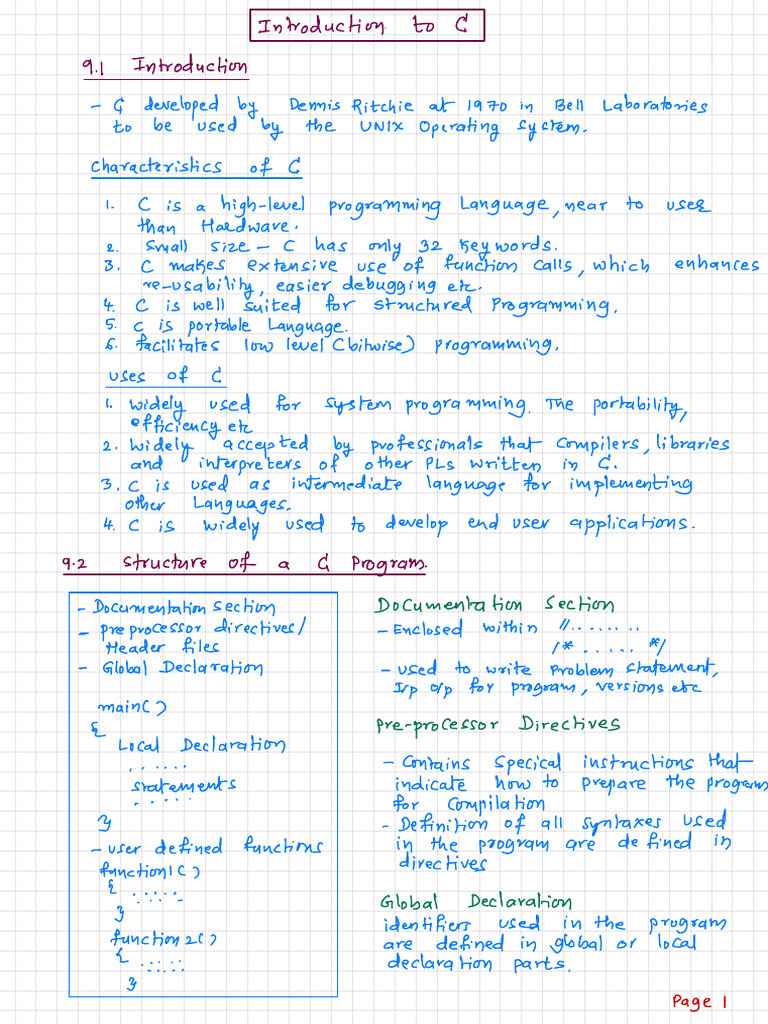 Introduction to C
9.1 Introduction
- C developed by Dennis Ritchie at 1970 in Bell Laboratories
to be used by the UNIX Operating System.
Characteristics of C
1. C is a high-level programming Language, near to user
than Hardware.
2. Small size - C has only 32 keywords.
3. C makes extensive use of function calls, which enhances
re-usability, easier debugging etc.
4. C is well suited for structured Programming.
5. C is portable Language.
6. facilitates low level (bitwise) programming.
uses of C
1. widely used for system programming. The portability,
efficiency etc
2. widely accepted by professionals that compilers, libraries
and interpreters of other PLs written in C.
3. C is used as intermediate language for implementing
other Languages.
4. C is widely used to develop end user applications.
9.2 Structure of a C Program.
- Documentation section
- preprocessor directives/
Header files
- Global Declaration
main()
{
Local Declaration
......
statements
......
}
- user defined functions
function1()
{ ......
}
function2()
{ ......
}
Documentation Section
- Enclosed within //.......
/* ...... */
- used to write problem statement,
I/p o/p for program, versions etc
Pre-processor Directives
- Contains Specical instructions that
indicate how to prepare the program
for compilation
- Definition of all syntaxes used
in the program are defined in
directives
Global Declaration
identifiers used in the program
are defined in global or local
declaration parts.
Page 1